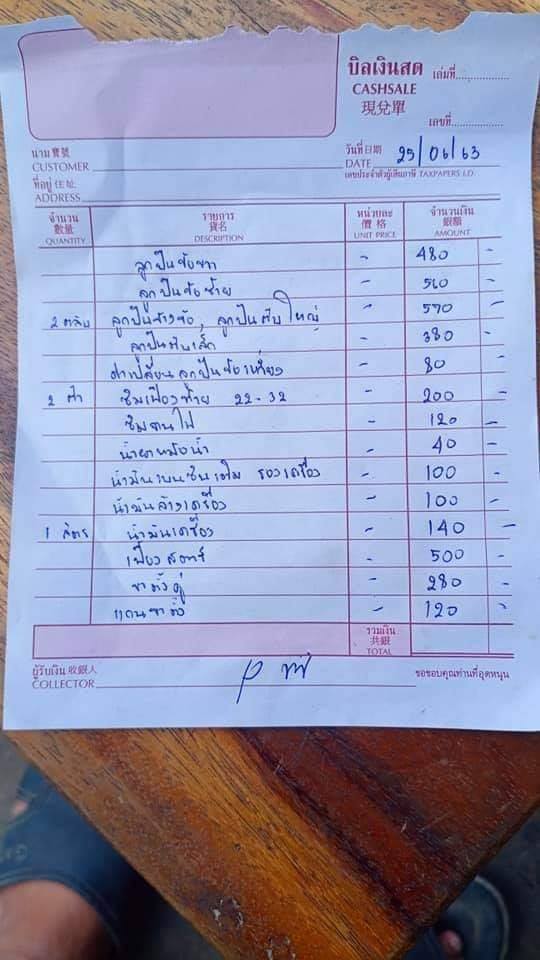 บิลเงินสด เล่มที่
CASHSALE
現兌單
เลขที่
นาม 寶號
CUSTOMER
วันที่ 日期
DATE 25/06/63
ที่อยู่ 住址
ADDRESS
เลขประจำตัวผู้เสียภาษี TAXPAPERS I.D.
จำนวน รายการ หน่วยละ จำนวนเงิน
數量 貨名 價格 銀額
QUANTITY DESCRIPTION UNIT PRICE AMOUNT
ลูกปืนข้อขวา - 480 -
ลูกปืนข้อซ้าย - 560 -
2 ตลับ ลูกปืนข้างข้อ, ลูกปืนคันใหญ่ - 590 -
ลูกปืนคันเล็ก - 380 -
ค่าเปลี่ยนลูกปืนข้อเหวี่ยง - 80 -
2 ตัว ซิมเฟืองท้าย 22-32 - 200 -
ซิมจานไฟ - 120 -
น้ำยาหม้อน้ำ - 40 -
น้ำมันเบนซินเติม รองเครื่อง - 100 -
น้ำมันล้างเครื่อง - 100 -
1 ลิตร น้ำมันเครื่อง - 140 -
เฟืองสตาร์ - 500 -
ขาตั้งคู่ - 280 -
แกนขาตั้ง - 120 -
รวมเงิน
共銀
TOTAL
ผู้รับเงิน 收銀人
COLLECTOR
ขอขอบคุณท่านที่อุดหนุน